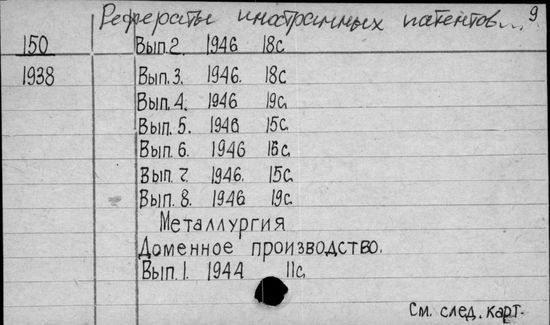 Рефераты иностранных патентов... 9
150 Вып.2. 1946 18с.
1938 Вып.3. 1946. 18с
Вып.4. 1946 19с.
Вып.5. 1946 15с.
Вып.6. 1946 16с.
Вып.7. 1946. 15с.
Вып.8. 1946 19с.
Металлургия
Доменное производство.
Вып.1. 1944 11с.
См. след. карт.